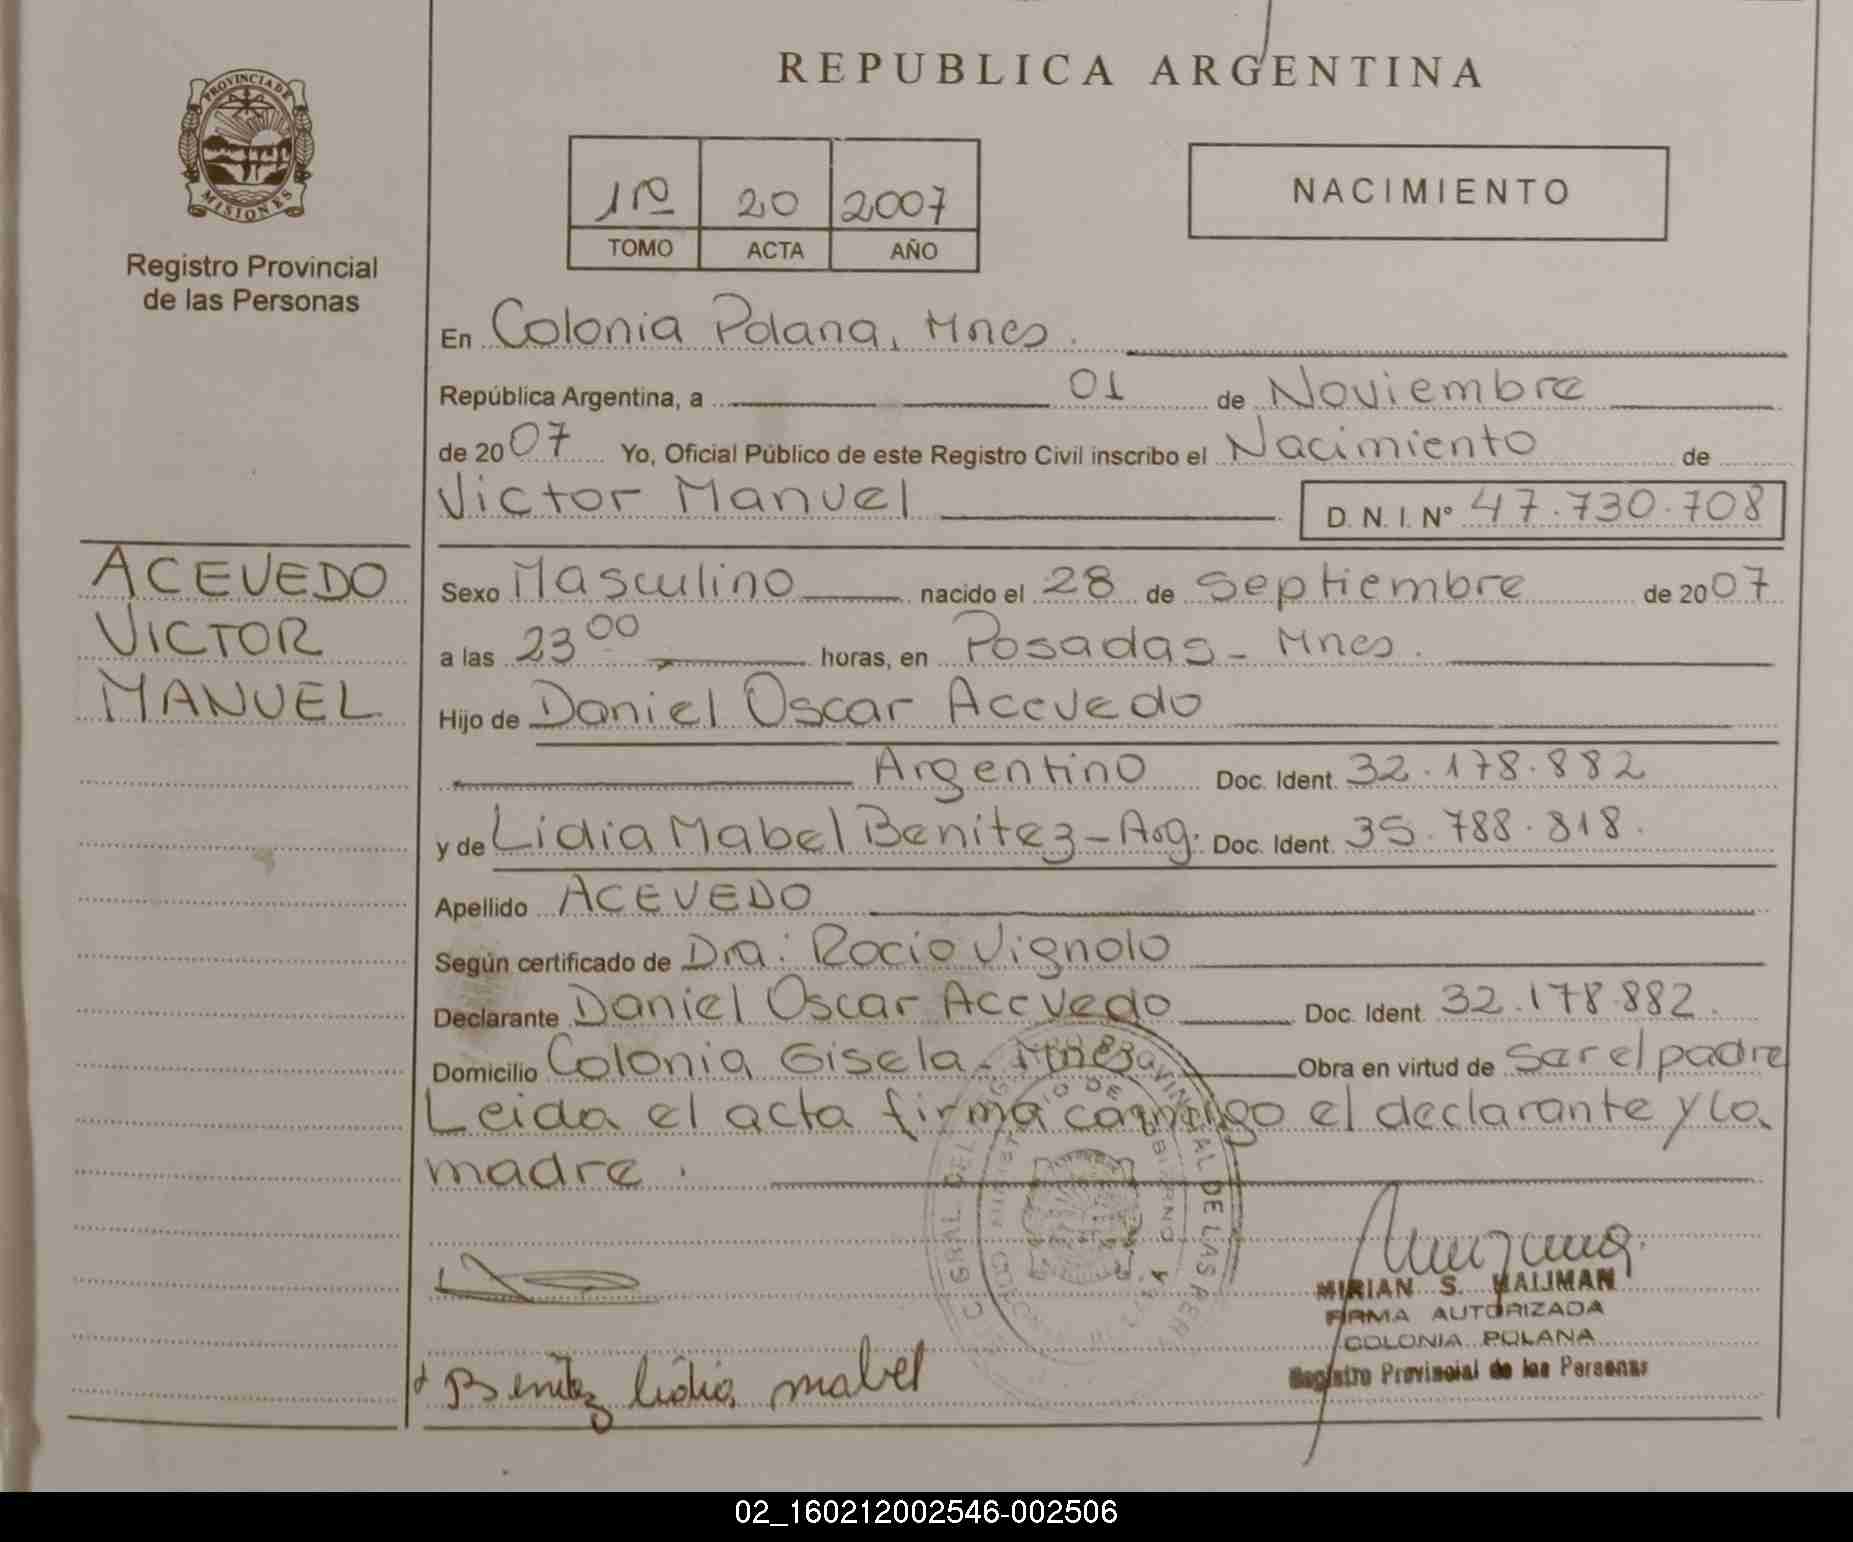 REPUBLICA ARGENTINA
PROVINCIA DE
MISIONES
Registro Provincial
de las Personas
1ro 20 2007
TOMO ACTA AÑO
NACIMIENTO
En Colonia Polana, Mnes.
República Argentina, a 01 de Noviembre
de 2007 Yo, Oficial Público de este Registro Civil inscribo el Nacimiento de
Victor Manuel D. N. I. Nº 47.730.708
ACEVEDO
VICTOR
MANUEL
Sexo Masculino nacido el 28 de Septiembre de 2007
a las 23 00 horas, en Posadas - Mnes.
Hijo de Daniel Oscar Acevedo
Argentino Doc. Ident. 32.178.882
y de Lidia Mabel Benitez - Arg. Doc. Ident. 35.788.818.
Apellido ACEVEDO
Según certificado de Dra: Rocio Vignolo
Declarante Daniel Oscar Acevedo Doc. Ident. 32.178.882.
Domicilio Colonia Gisela - Mnes Obra en virtud de ser el padre
Leida el acta firma conmigo el declarante y la
madre.
MIRIAN S. HALIMAN
FIRMA AUTORIZADA
COLONIA POLANA
Registro Provincial de las Personas
Benitez lidia mabel
02_160212002546-002506